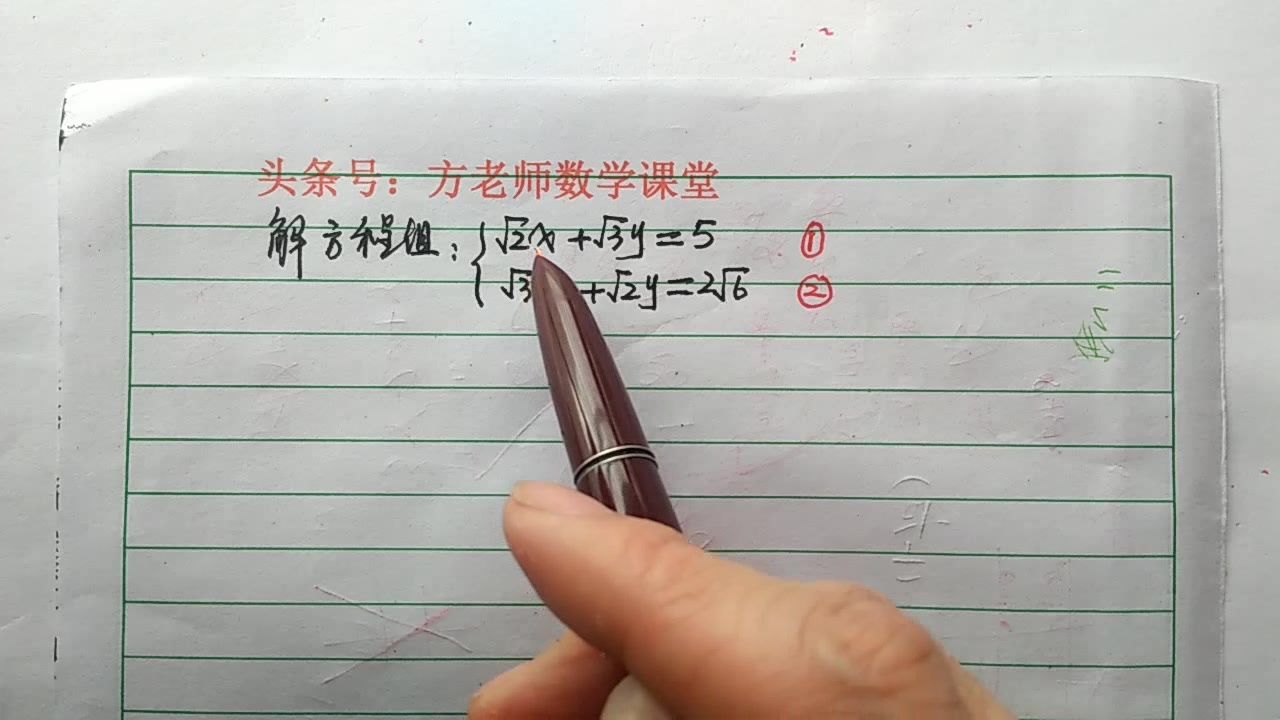 头条号：方老师数学课堂
解方程组：{√2x+√3y=5 ①
√3 +√2y=2√6 ②